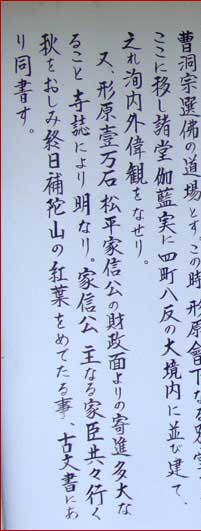 曹洞宗選佛の道場とす。この時、形原會下なる
ここに移し諸堂伽藍実に四町八反の大境内に並び建て、
え洵内外偉観をなせり。
又、形原壹万石松平家信公の財政面よりの寄進多大な
ること寺誌により明なり。家信公主なる家臣共々行く
秋をおしみ終日補陀山の紅葉をめでたる事、古文書にあ
り同書す。